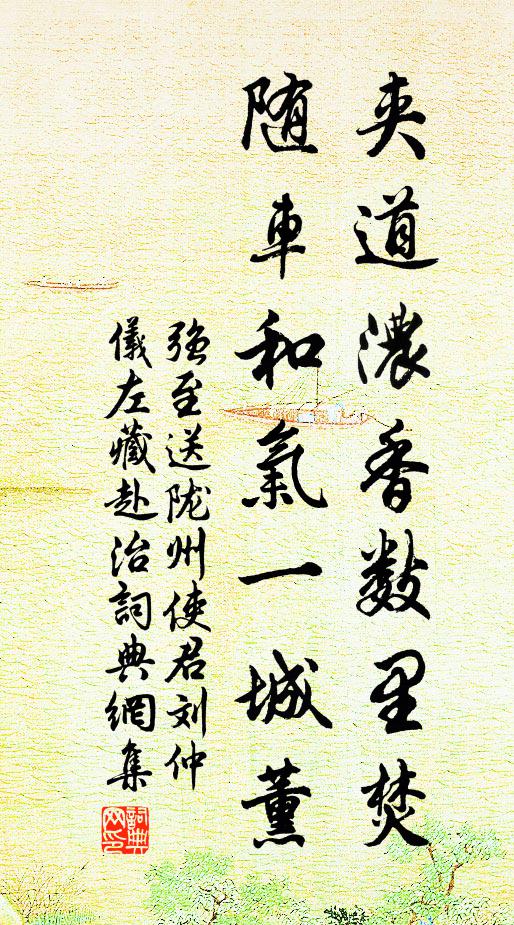 夹道濃香数里焚
随車和氣一城薰
強至送陇州使君刘仲
儀左藏赴治詞典網集
詞典网印